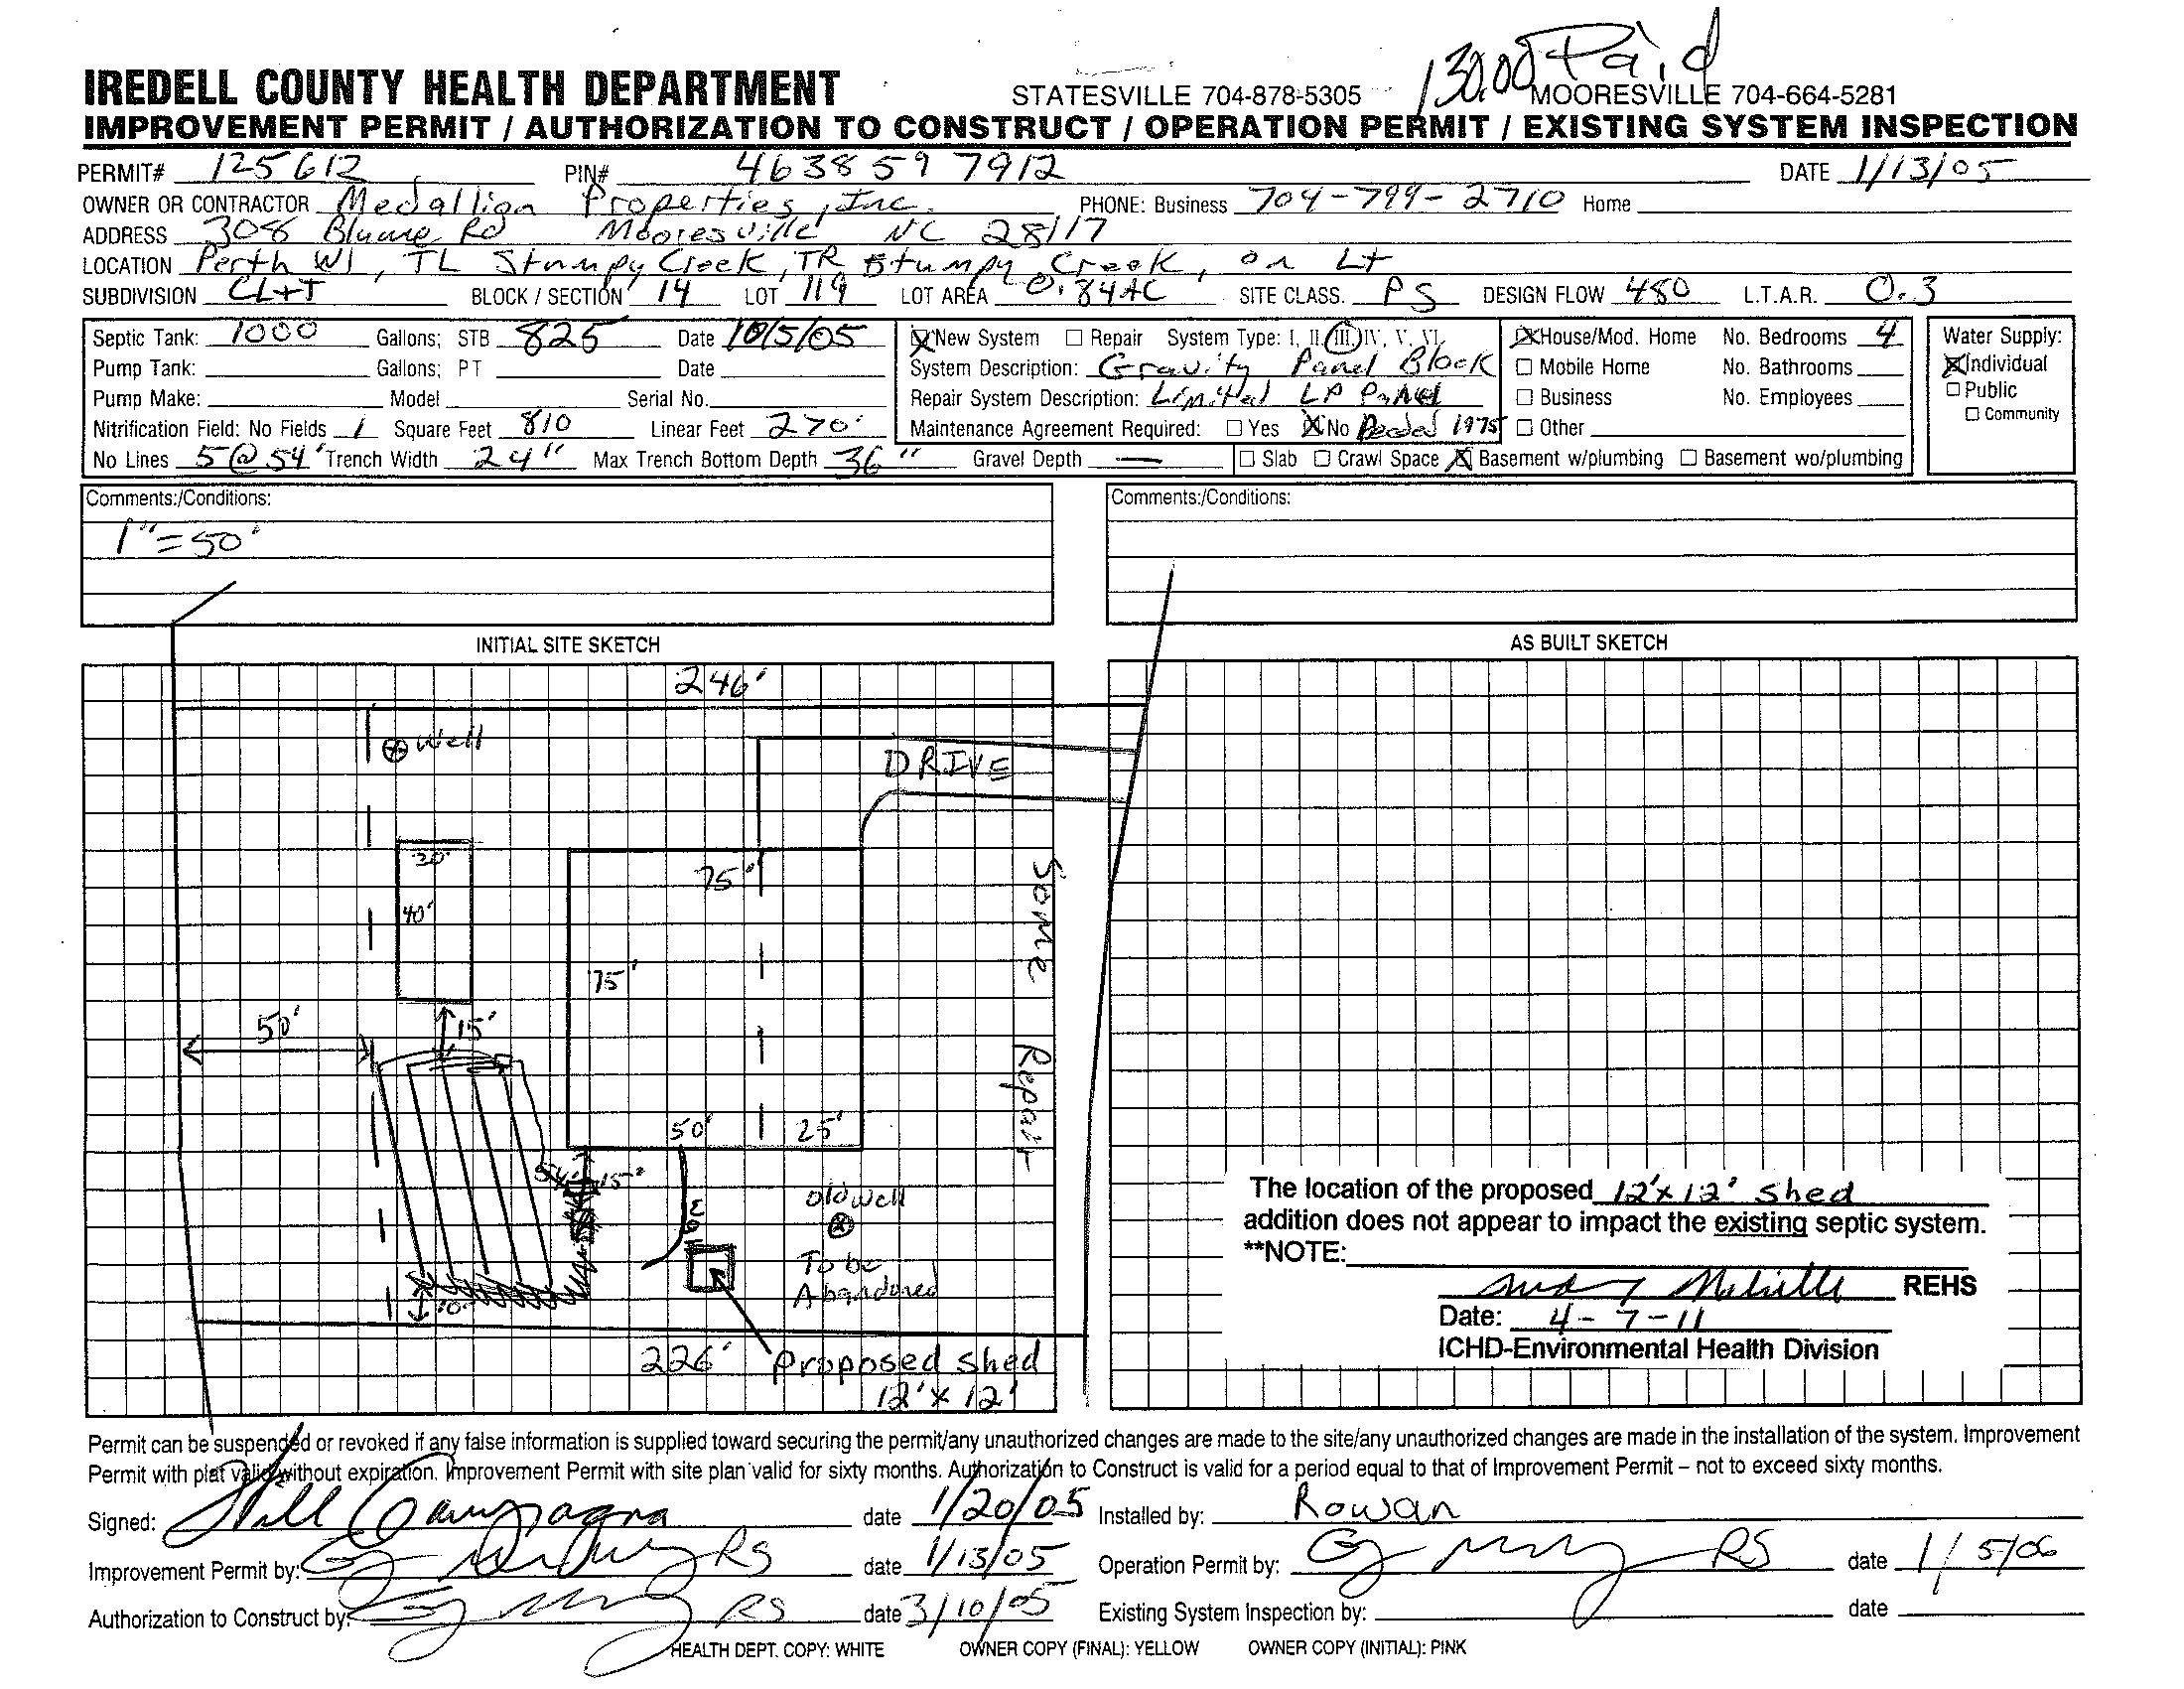 130.00 Paid
IREDELL COUNTY HEALTH DEPARTMENT STATESVILLE 704-878-5305 MOORESVILLE 704-664-5281
IMPROVEMENT PERMIT / AUTHORIZATION TO CONSTRUCT / OPERATION PERMIT / EXISTING SYSTEM INSPECTION
PERMIT# 125612 PIN# 4638597912 DATE 1/13/05
OWNER OR CONTRACTOR Medallion Properties, Inc. PHONE: Business 704-799-2710 Home
ADDRESS 308 Blume Rd Mooresville NC 28117
LOCATION Perth W1, TL Stumpy Creek, TR Stumpy Creek, on Lt
SUBDIVISION CL+T BLOCK / SECTION 14 LOT 119 LOT AREA 0.84AC SITE CLASS. PS DESIGN FLOW 480 L.T.A.R. 0.3
Septic Tank: 1000 Gallons; STB 825 Date 10/5/05 New System Repair System Type: I, II, III, IV, V, VI House/Mod. Home No. Bedrooms 4 Water Supply:
Pump Tank: Gallons; PT Date System Description: Gravity Panel Block Mobile Home No. Bathrooms Individual
Pump Make: Model Serial No. Repair System Description: Limited LP Panel Business No. Employees Public
Community
Nitrification Field: No Fields 1 Square Feet 810 Linear Feet 270' Maintenance Agreement Required: Yes No Deeded 1975 Other
No Lines 5@54' Trench Width 24" Max Trench Bottom Depth 36" Gravel Depth — Slab Crawl Space Basement w/plumbing Basement wo/plumbing
Comments:/Conditions: Comments:/Conditions:
1"=50'
INITIAL SITE SKETCH AS BUILT SKETCH
246'
Well
DRIVE
20'
75'
40'
Some Repair
75'
50' 15'
50' 25'
54' 15'
old well
To be
Abandoned
10'
226' Proposed shed
12' x 12'
The location of the proposed 12'x12' shed
addition does not appear to impact the existing septic system.
**NOTE:
REHS
Date: 4-7-11
ICHD-Environmental Health Division
Permit can be suspended or revoked if any false information is supplied toward securing the permit/any unauthorized changes are made to the site/any unauthorized changes are made in the installation of the system. Improvement
Permit with plat valid without expiration. Improvement Permit with site plan valid for sixty months. Authorization to Construct is valid for a period equal to that of Improvement Permit – not to exceed sixty months.
Signed: date 1/20/05 Installed by: Rowan
Improvement Permit by: RS date 1/13/05 Operation Permit by: RS date 1/5/06
Authorization to Construct by: RS date 3/10/05 Existing System Inspection by: date
HEALTH DEPT. COPY: WHITE OWNER COPY (FINAL): YELLOW OWNER COPY (INITIAL): PINK